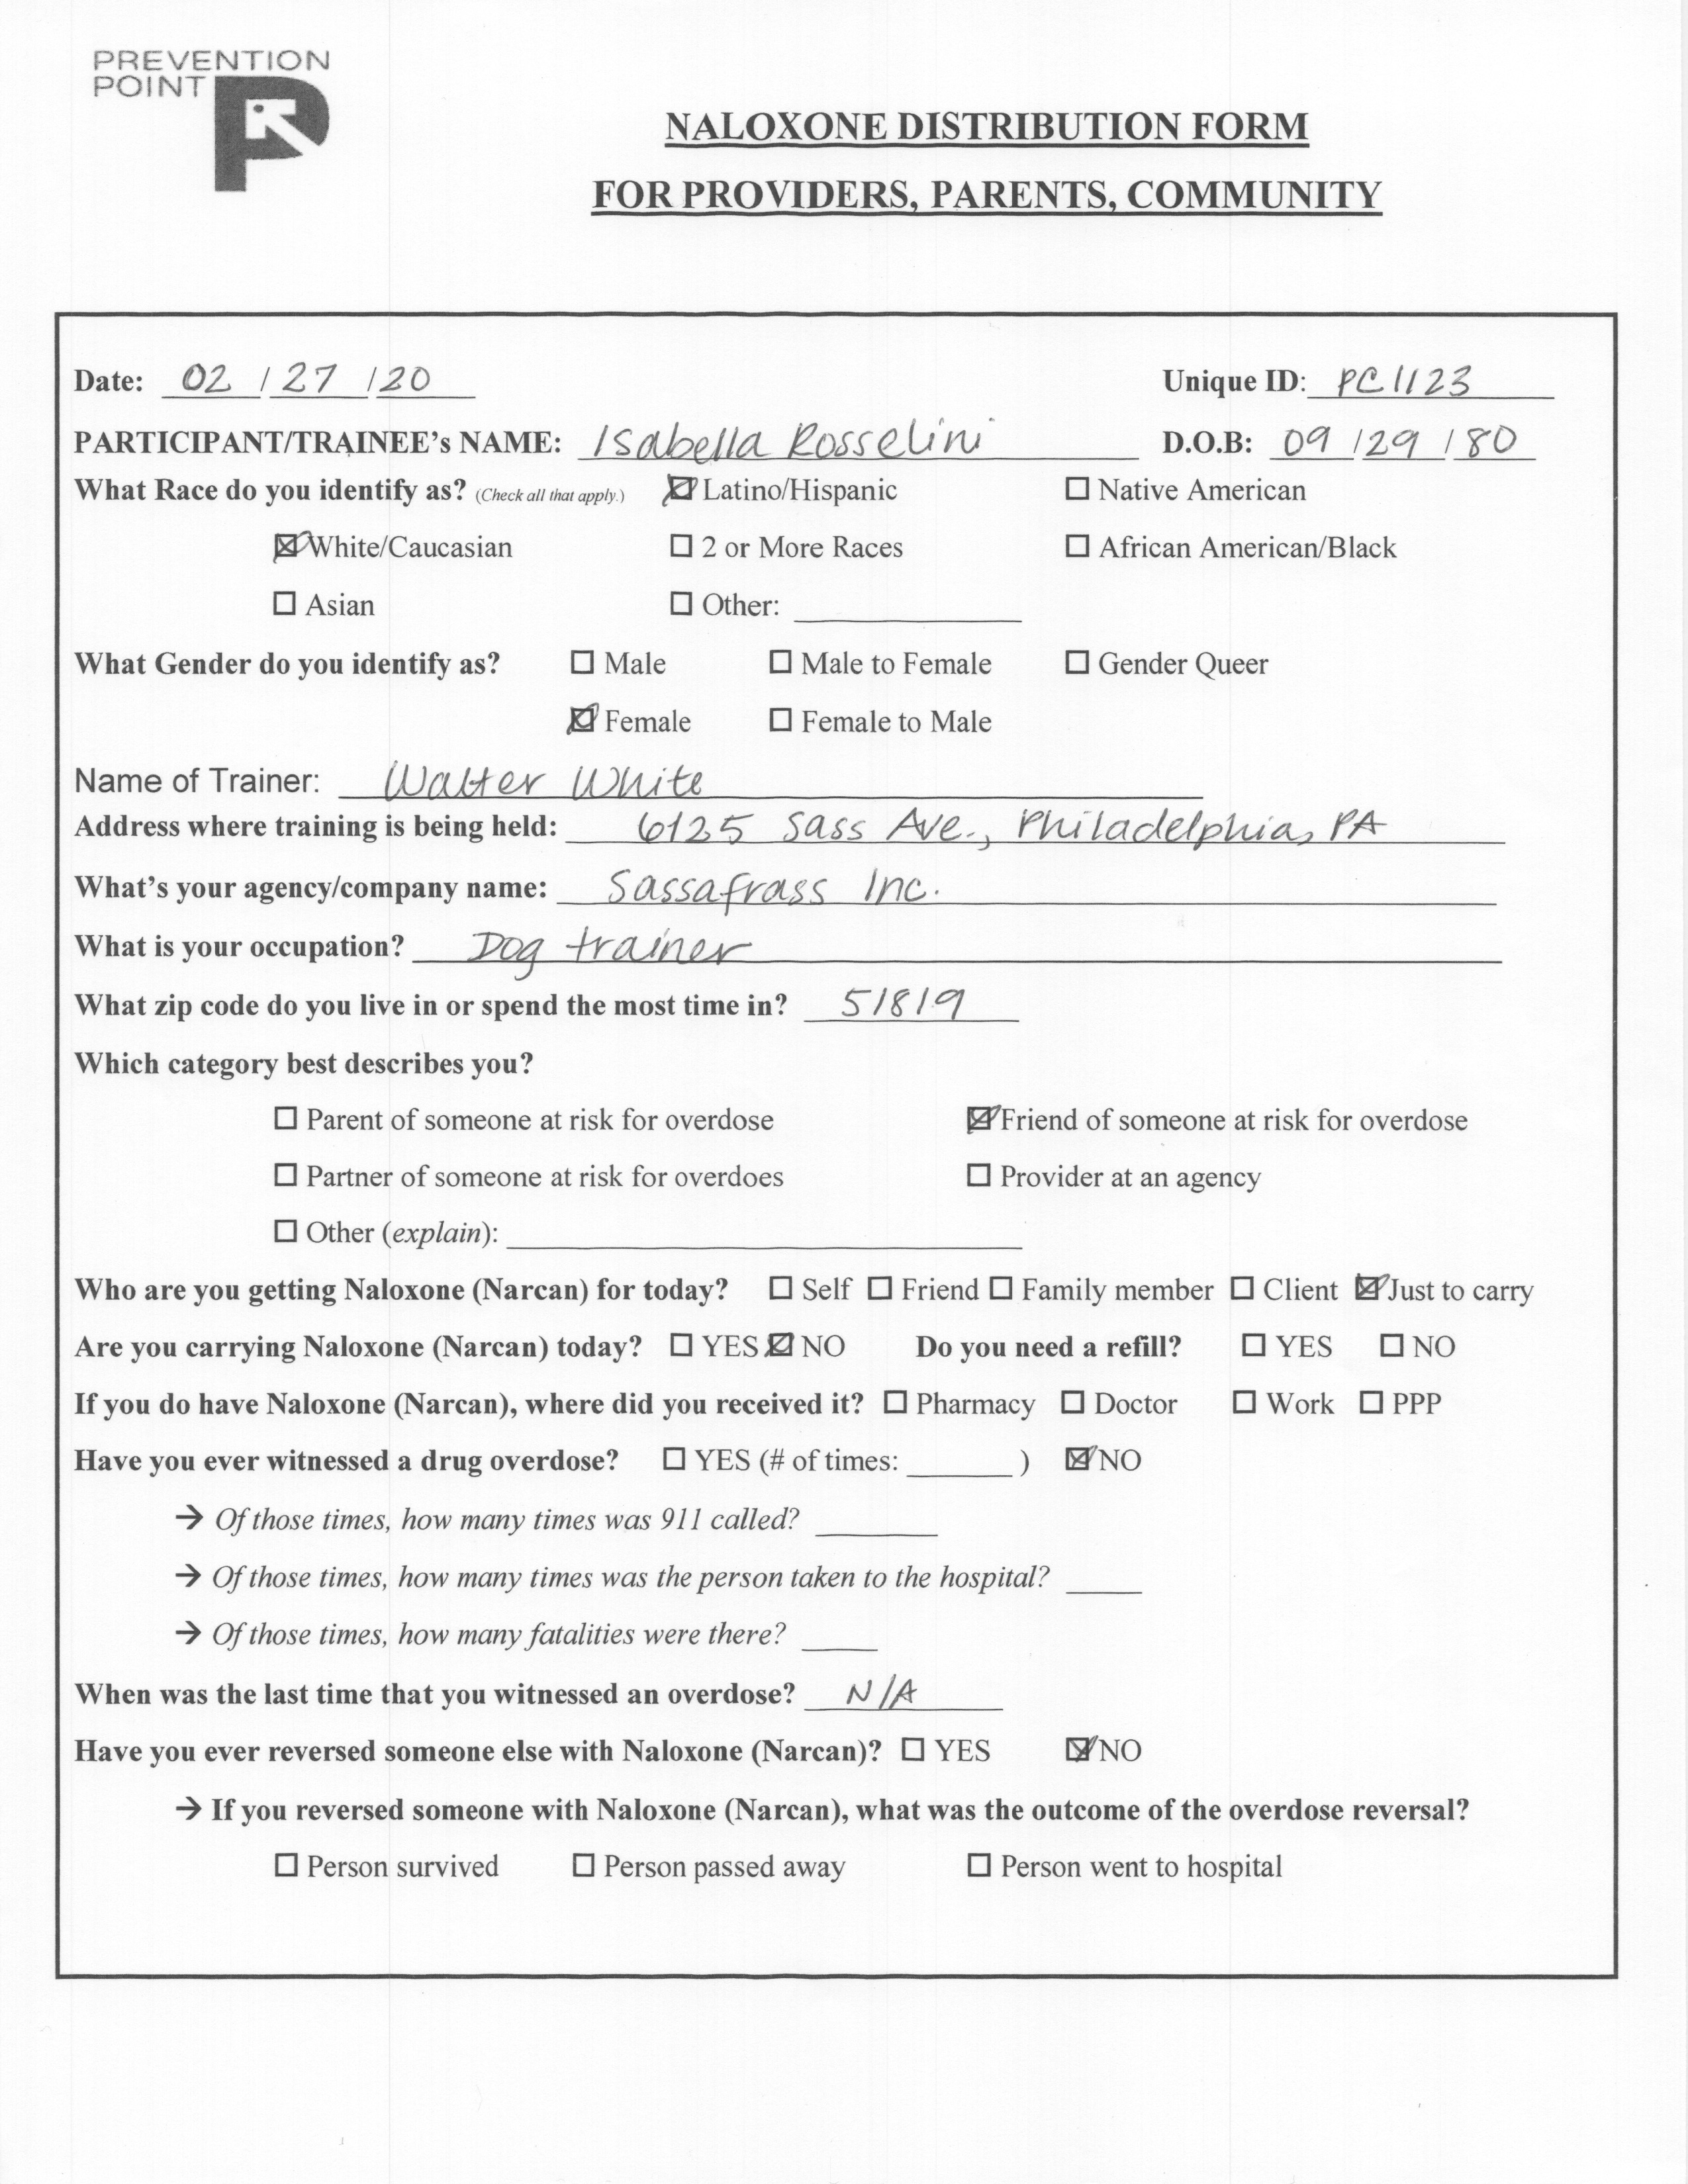 PREVENTION
POINT
NALOXONE DISTRIBUTION FORM
FOR PROVIDERS, PARENTS, COMMUNITY
Date: 02 / 27 / 20 Unique ID: PC1123
PARTICIPANT/TRAINEE's NAME: Isabella Rosselini D.O.B: 09 / 29 / 80
What Race do you identify as? (Check all that apply.) ☒ Latino/Hispanic ☐ Native American
☒ White/Caucasian ☐ 2 or More Races ☐ African American/Black
☐ Asian ☐ Other: ____
What Gender do you identify as? ☐ Male ☐ Male to Female ☐ Gender Queer
☒ Female ☐ Female to Male
Name of Trainer: Walter White
Address where training is being held: 6125 Sass Ave., Philadelphia, PA
What's your agency/company name: Sassafrass Inc.
What is your occupation? Dog trainer
What zip code do you live in or spend the most time in? 51819
Which category best describes you?
☐ Parent of someone at risk for overdose ☒ Friend of someone at risk for overdose
☐ Partner of someone at risk for overdoes ☐ Provider at an agency
☐ Other (explain): ____
Who are you getting Naloxone (Narcan) for today? ☐ Self ☐ Friend ☐ Family member ☐ Client ☒ Just to carry
Are you carrying Naloxone (Narcan) today? ☐ YES ☒ NO Do you need a refill? ☐ YES ☐ NO
If you do have Naloxone (Narcan), where did you received it? ☐ Pharmacy ☐ Doctor ☐ Work ☐ PPP
Have you ever witnessed a drug overdose? ☐ YES (# of times: ____ ) ☒ NO
→ Of those times, how many times was 911 called? ____
→ Of those times, how many times was the person taken to the hospital? ____
→ Of those times, how many fatalities were there? ____
When was the last time that you witnessed an overdose? N/A
Have you ever reversed someone else with Naloxone (Narcan)? ☐ YES ☒ NO
→ If you reversed someone with Naloxone (Narcan), what was the outcome of the overdose reversal?
☐ Person survived ☐ Person passed away ☐ Person went to hospital